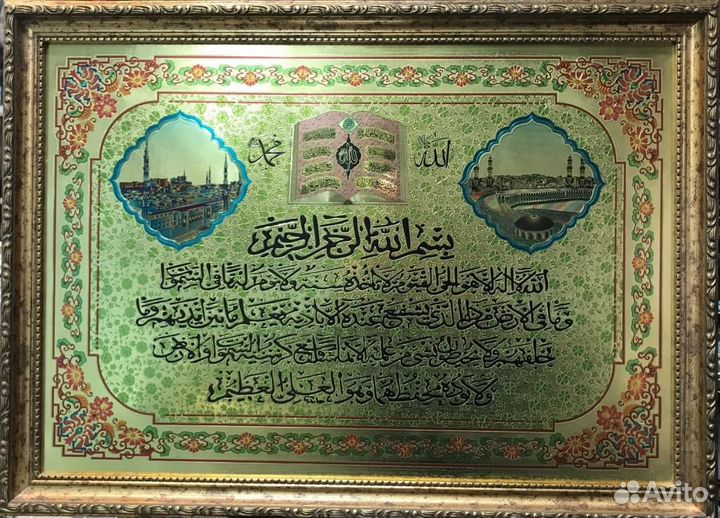 الله
محمد
بسم الله الرحمن الرحيم
الله لا إله إلا هو الحي القيوم لا تأخذه سنة ولا نوم له ما في السموا
ت وما في الأرض من ذا الذي يشفع عنده إلا بإذنه يعلم ما بين أيديهم وما
خلفهم ولا يحيطون بشيء من علمه إلا بما شاء وسع كرسيه السموات والأرض
ولا يؤده حفظهما وهو العلي العظيم
Avito